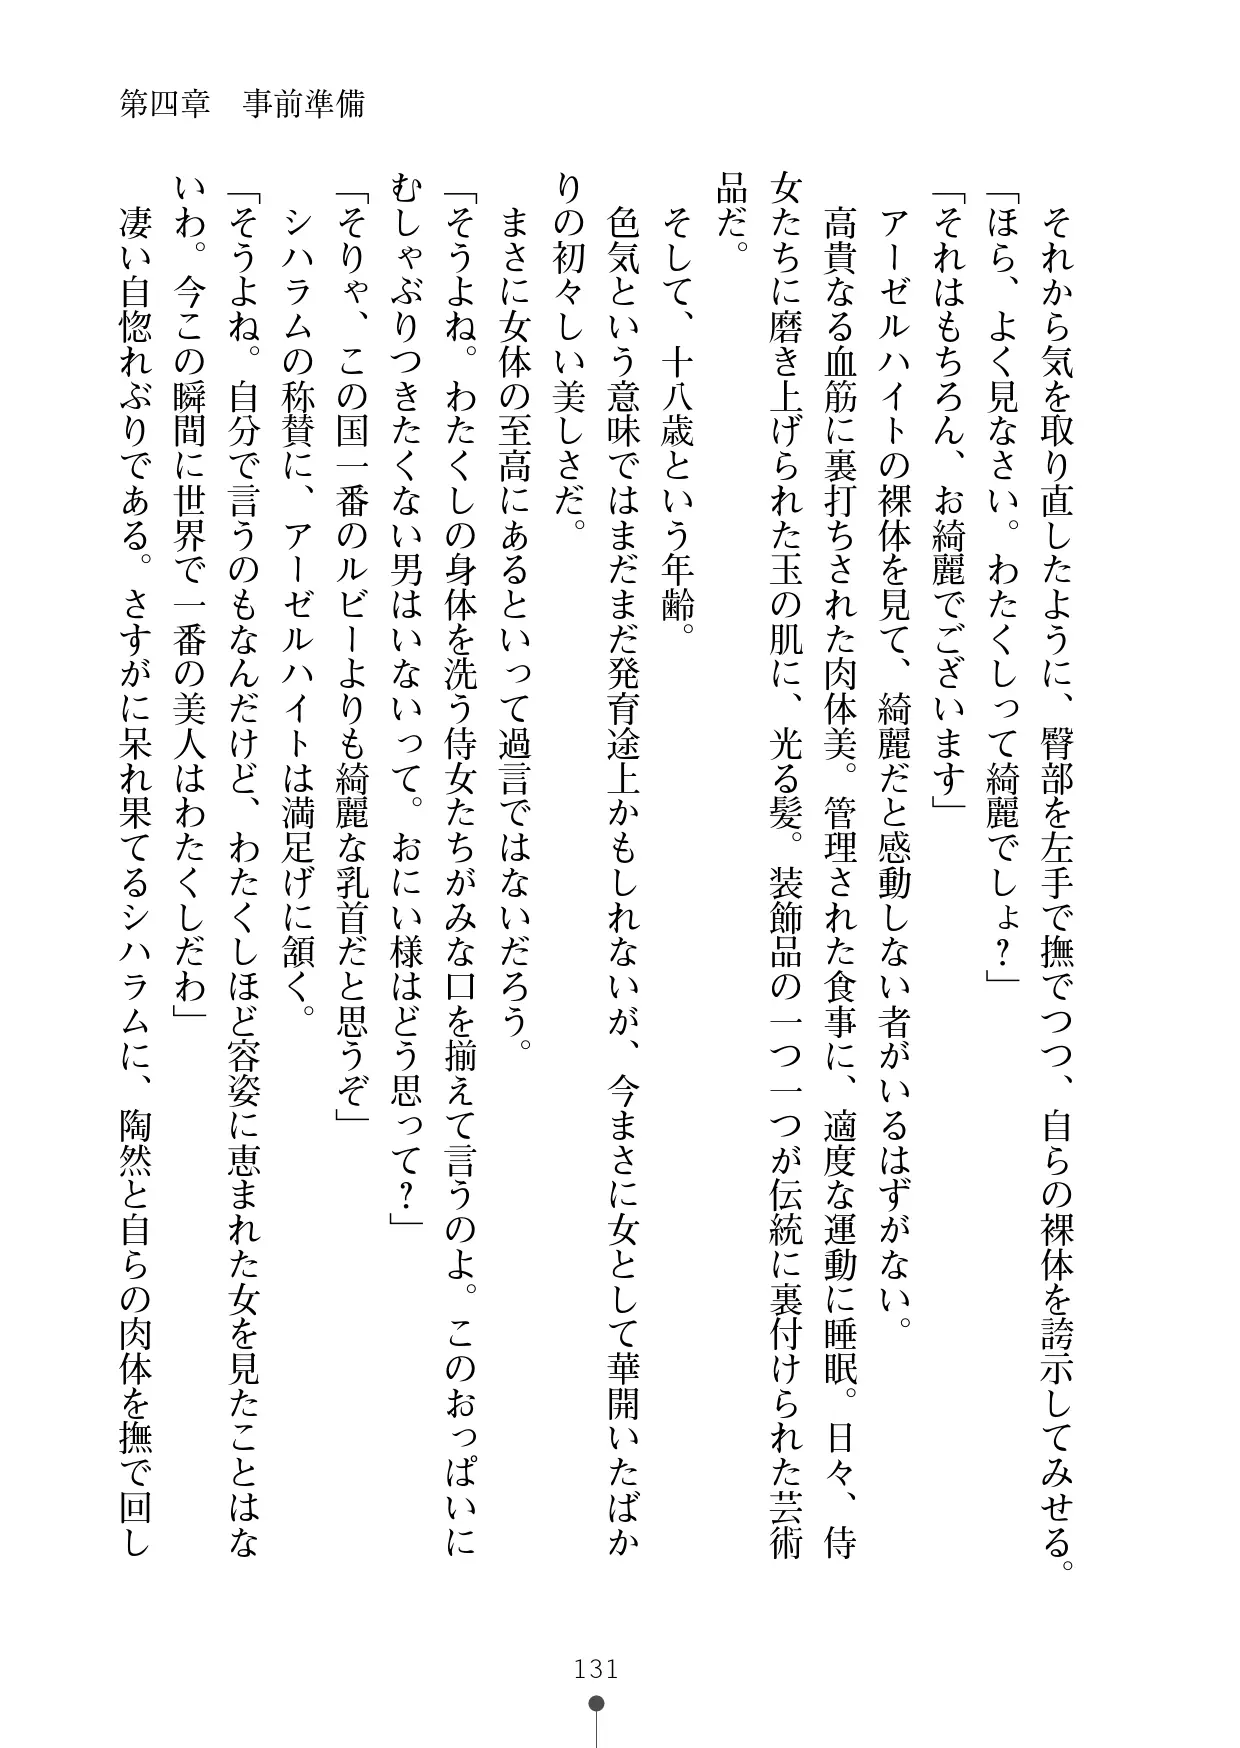 第四章　事前準備
　それから気を取り直したように、臀部を左手で撫でつつ、自らの裸体を誇示してみせる。
「ほら、よく見なさい。わたくしって綺麗でしょ？」
「それはもちろん、お綺麗でございます」
　アーゼルハイトの裸体を見て、綺麗だと感動しない者がいるはずがない。
　高貴なる血筋に裏打ちされた肉体美。管理された食事に、適度な運動に睡眠。日々、侍
女たちに磨き上げられた玉の肌に、光る髪。装飾品の一つ一つが伝統に裏付けられた芸術
品だ。
　そして、十八歳という年齢。
　色気という意味ではまだまだ発育途上かもしれないが、今まさに女として華開いたばか
りの初々しい美しさだ。
　まさに女体の至高にあるといって過言ではないだろう。
「そうよね。わたくしの身体を洗う侍女たちがみな口を揃えて言うのよ。このおっぱいに
むしゃぶりつきたくない男はいないって。おにい様はどう思って？」
「そりゃ、この国一番のルビーよりも綺麗な乳首だと思うぞ」
　シハラムの称賛に、アーゼルハイトは満足げに頷く。
「そうよね。自分で言うのもなんだけど、わたくしほど容姿に恵まれた女を見たことはな
いわ。今この瞬間に世界で一番の美人はわたくしだわ」
　凄い自惚れぶりである。さすがに呆れ果てるシハラムに、陶然と自らの肉体を撫で回し
131